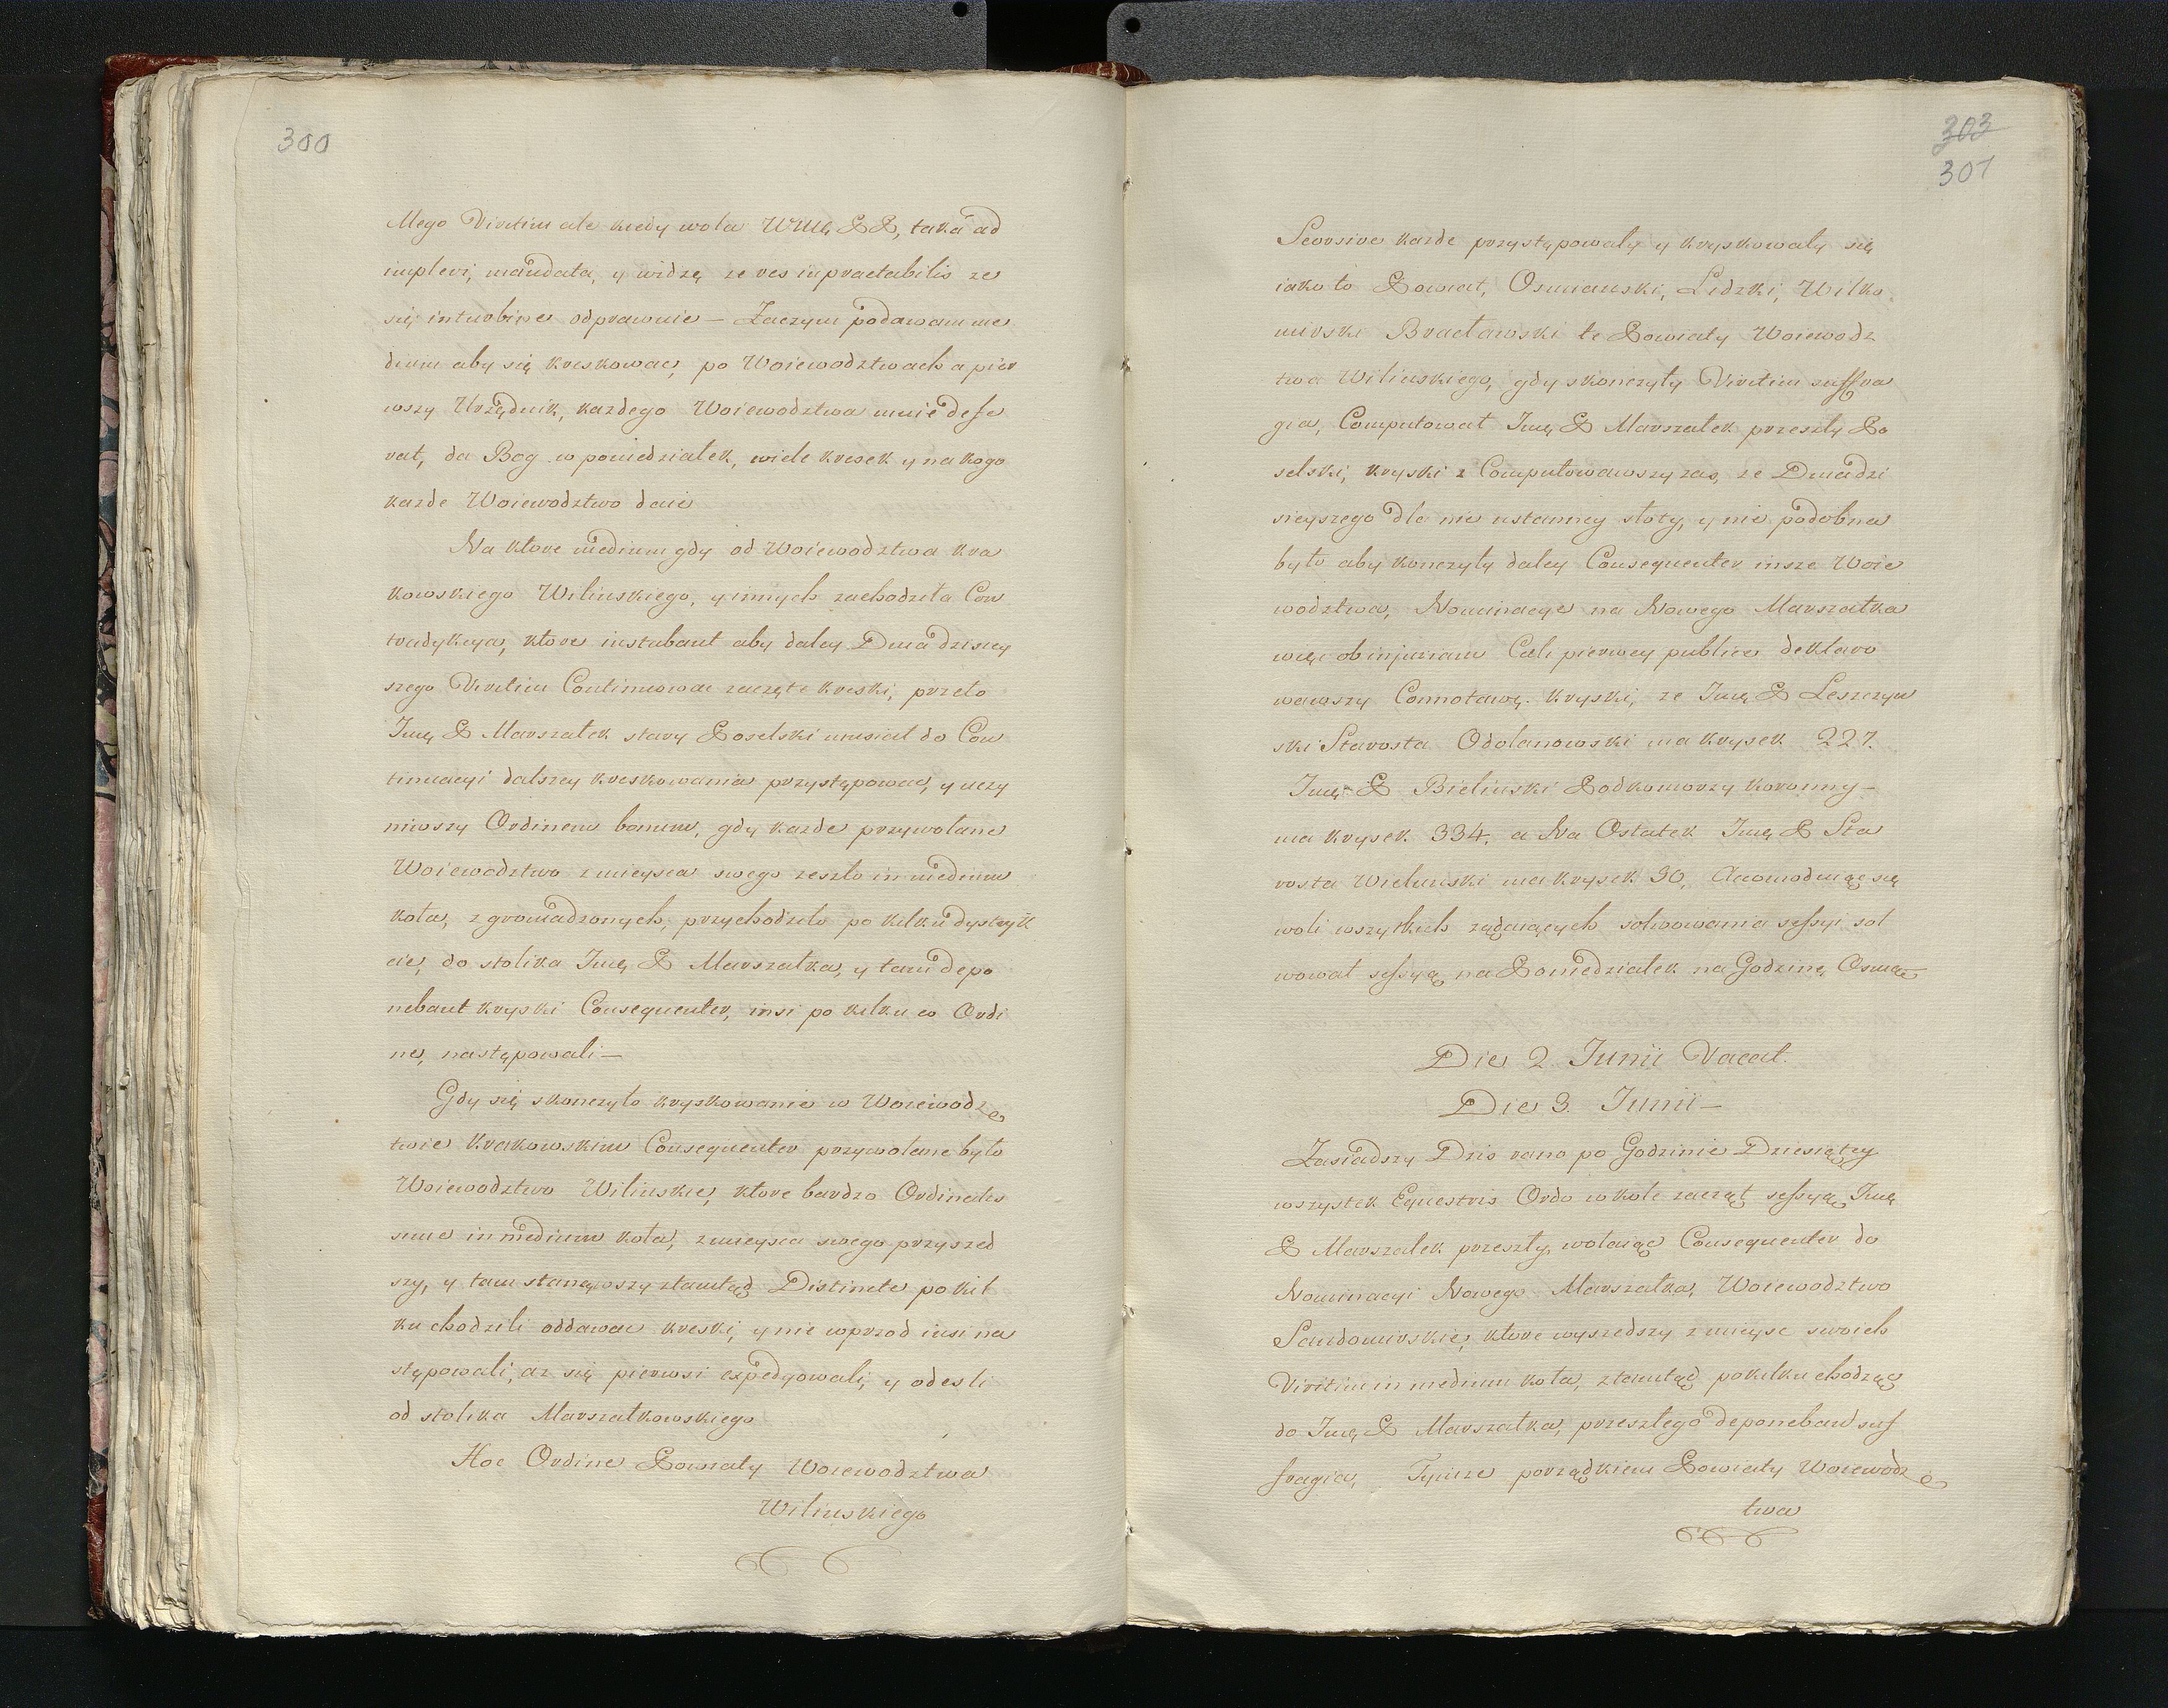 300
Mego Viritim ale kiedy wola WMę PP, taka ad
implevi, mandata, y widzę ze res inpractabilis ze
się in turbine odprawuie — Zaczym podawam me
dium aby się kreskowac, po Woiewodztwach a pier
wszy Urzędnik, kazdego Woiewodztwa mnie defe
rat, da Bog w poniedzialek, wiele kresek y na kogo
kazde Woiewodztwo daie
Na ktore medium gdy od Woiewodztwa Kra
kowskiego Wilinskiego, y innych zachodziła Con
tradykcya, ktore instabant aby daley Dnia dzisiey
szego Viritim Continuowac zaczęte kreski, przeto
Imę P Marszałek stary Poselski musiał do Con
tinuacyi dalszey kreskowania przystępowac, y uczy
niwszy Ordinem bonum, gdy kazde przywołane
Woiewodztwo z mieysca swego zeszło in medium
koła, zgromadzonych, przychodziło po kilku dystryk
cie, do stolika Imę P Marszałka, y tam depo
nebant kryski Consequenter, insi po kilku eo Ordi
ne, następowali —
Gdy się skonczyło kryskowanie w Woiewodz
twie Krakowskim Consequenter przywołane było
Woiewodztwo Wilinskie, ktore bardzo Ordinatis
sime in medium koła, z mieysca swego przyszed
szy, y tam stanąwszy ztamtąd Distincte po kil
ku chodzili oddawac kreski, y nie wprzod insi na
stępowali, az się pierwsi expedyowali, y odesli
od stolika Marszałkowskiego
Hoc Ordine Powiaty Woiewodztwa
Wilinskiego
303
301
Seorsive kazde przystępowały y kryskowały się
iako to Powiat, Osmianski, Lidzki, Wilko
mirski Bracławski te Powiaty Woiewodz
twa Wilinskiego, gdy skonczyły Viritim suffra
gia, Computował Imę P Marszałek przeszły Po
selski, kryski z Computowawszy zas, ze Dnia dzi
sieyszego dla nie ustanney słoty, y nie podobna
było aby konczyły daley Consequenter insze Woie
wodztwa, Nominacye na Nowego Marszałka
więc ob injuriam Cæli pierwey publice deklaro
wawszy Connotawę kryski, ze Imę P Leszczyn
ski Starosta Odolanowski ma krysek 227.
Imę P Bielinski Podkomorzy koronny —
ma krysek 334, a Na Ostatek Imę P Sta
rosta Wielunski ma krysek 30, Acomoduiąc się
woli wszytkich ządaiących solwowania sessyi sol
wował sessyą na Poniedziałek na Godzinę Osmą —
Die 2 Junii Vacat.
Die 3. Junii —
Zasiadszy Dzis rano po Godzinie Dziesiątey
wszystek Equestris Ordo w kole zaczął sessyą Imę
P Marszałek przeszły, wołaiąc Consequenter do
Nominacyi Nowego Marszałka, Woiewodztwo
Sandomirskie, ktore wyszedszy z mieysc swoich
Viritim in medium koła, ztamtąd po kilku chodząc
do Imę P Marszałka, przeszłego deponebant suf
fragia, Tymze porządkiem Powiaty Woiewodz
twa